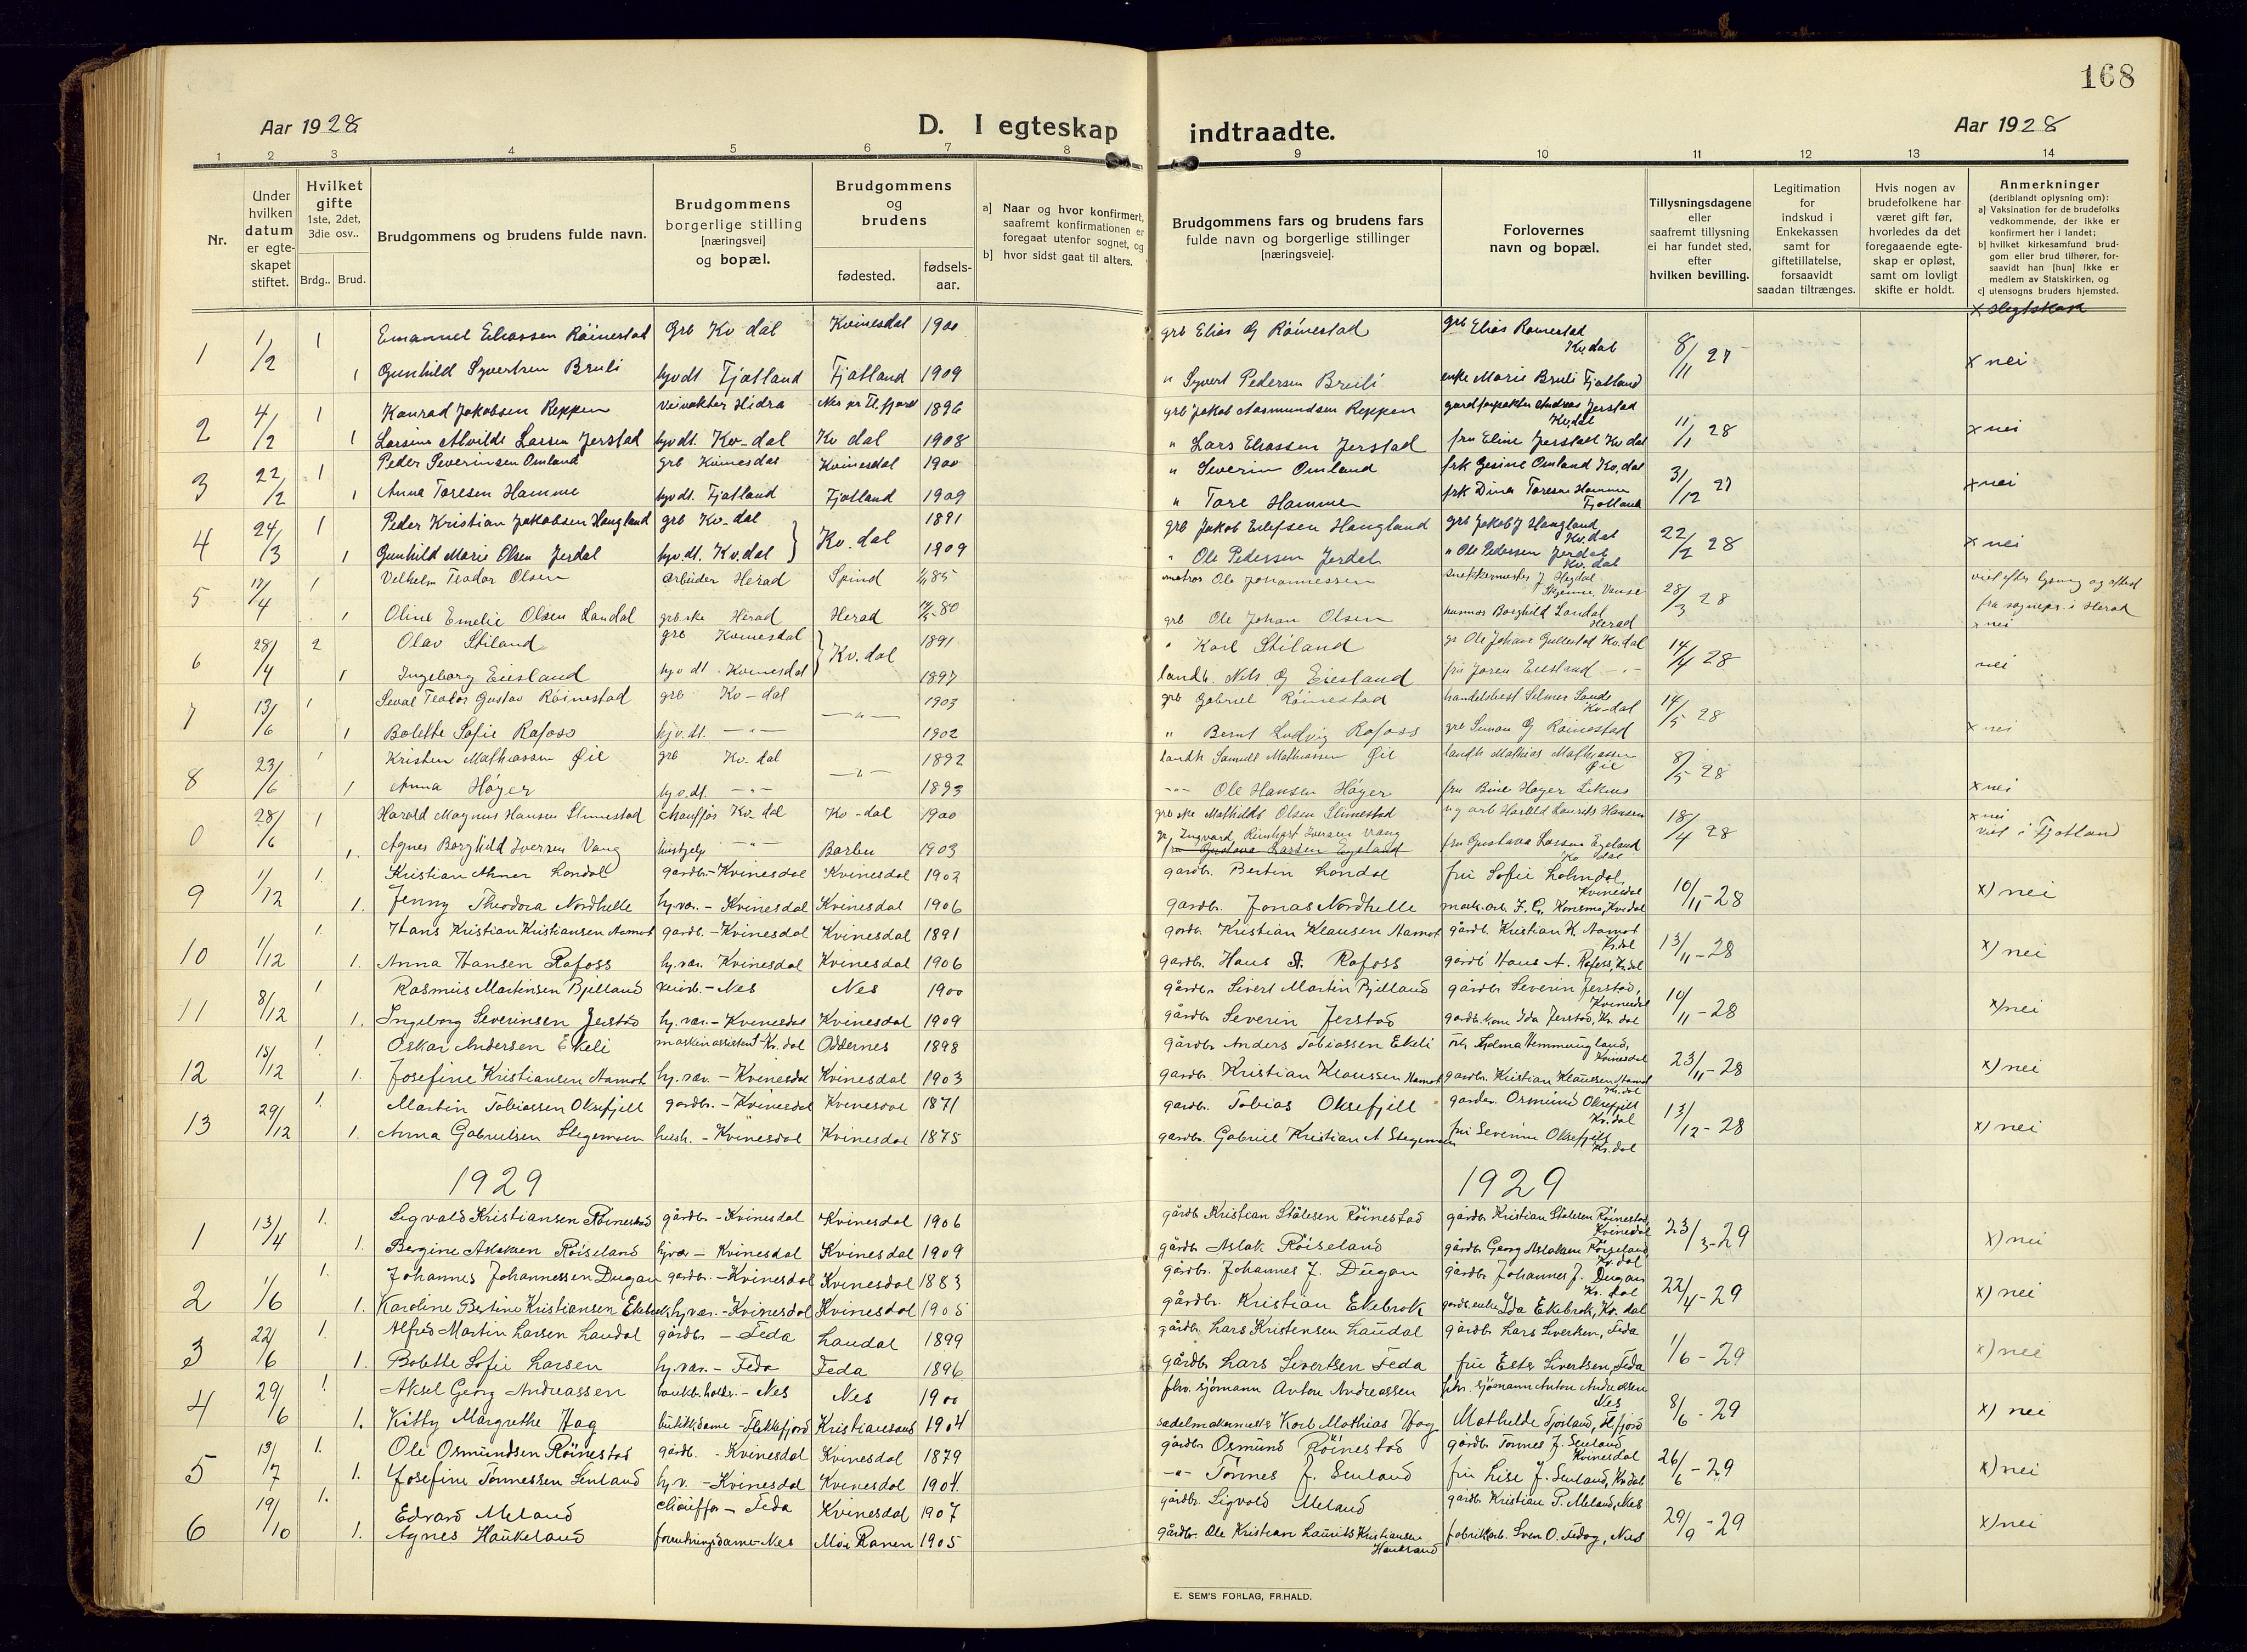 168
Aar 1928
D. I egteskap indtraadte.
Aar 1928
1 2 3 4 5 6 7 8 9 10 11 12 13 14
Nr.
Under hvilken datum er egte-skapet stiftet.
Hvilket gifte 1ste, 2det, 3die osv..
Brdg.. Brud.
Brudgommens og brudens fulde navn.
Brudgommens borgerlige stilling [næringsvei] og bopæl.
Brudgommens og brudens
fødested. fødsels-aar.
a] Naar og hvor konfirmert, saafremt konfirmationen er foregaat utenfor sognet, og
b] hvor sidst gaat til alters.
Brudgommens fars og brudens fars fulde navn og borgerlige stillinger [næringsveie].
Forlovernes navn og bopæl.
Tillysningsdagene eller saafremt tillysning ei har fundet sted, efter hvilken bevilling.
Legitimation for indskud i Enkekassen samt for giftetillatelse, forsaavidt saadan tiltrænges.
Hvis nogen av brudefolkene har været gift før, hvorledes da det foregaaende egte-skap er opløst, samt om lovligt skifte er holdt.
Anmerkninger (deriblandt oplysning om):
a] Vaksination for de brudefolks vedkommende, der ikke er konfirmert her i landet;
b] hvilket kirkesamfund brud-gom eller brud tilhører, for-saavidt han [hun] ikke er medlem av Statskirken, og
c] utensogns bruders hjemsted.
x slegtskab
1 1/2 1 Emanuel Eliassen Röinestad Grb Kv dal Kvinesdal 1900 grb Elias G Röinestad grb Elias Röinestad Kv.dal 8/11 27 x nei
1 Gunhild Syvertsen Breili hv dt Fjotland Fjotland 1909 " Syvert Pedersen Breili enke Marie Breili Fjotland
2 4/2 1 Konrad Jakobsen Reppen Veivokter Hidra Nes pr Fl.fjord 1896 grb Jakob Aasmundsen Reppen gardforpakter Andreas Jerstad Kv.dal 11/1 28 x nei
1 Larsine Alvilde Larsen Jerstad hv dt. Kv-dal Kv dal 1908 " Lars Eliassen Jerstad fru Eline Jerstad Kv dal
3 22/2 1 Peder Severinsen Omland grb Kvinesdal Kvinesdal 1900 " Severin Omland frk Gesine Omland Kv.dal 31/12 27 x nei
1 Anna Toresen Hamme hv dt. Fjotland Fjotland 1909 " Tore Hamme frk Dina Toresen Hamme Fjotland
4 24/3 1 Peder Kristian Jakobsen Haugland grb Kv-dal Kv.dal 1891 grb Jakob Eilefsen Haugland grb Jakob J Haugland Kv.dal 22/2 28 x nei
1 Gunhild Marie Olsen Jerdal hv.dt. Kv.dal 1909 " Ole Pedersen Jerdal " Ole Pedersen Jerdal Kv.dal
5 17/4 1 Vilhelm Teodor Olsen arbeider Herad Spind 85 matros Ole Johannessen snekkermester J Hegdal Vanse 28/3 28 viet efter lysning og attest
1 Oline Emelie Olsen Landal grb.ske Herad Herad 80 grb Ole Johan Olsen husmor Borghild Landal Herad fra sognepr. i Herad x nei
6 28/4 2 Olav Stiland grb Kvinesdal Kv.dal 1891 " Karl Stiland gr Ole Johan Gullestad Kv.dal 14/4 28 nei
1 Ingeborg Eiesland hv dt. Kvinesdal 1897 landh. Nils G Eiesland fru Joren Eiesland -"-
7 13/6 1 Seval Teodor Gustav Röinestad grb Kv-dal -"- 1903 grb Gabriel Röinestad handelsbest Selmer Sande Kv-dal 14/5 28 x nei
1 Bolette Sofie Rafoss hv.dt. -"- 1902 " Bernt Ludvig Rafoss grb Simon G Röinestad
8 23/6 1 Kristen Mathiassen Øie grb Kv-dal -"- 1892 landh Samuel Mathiassen Øie landh Mathias Mathiassen Øie 8/5 28 x nei
1 Anna Höyer hv.dt. -"- 1893 -"- Ole Hansen Höyer fru Bine Höyer Liknes
0 28/6 1 Harald Magnus Hansen Slimestad chauffør Kv-dal Kv-dal 1900 grb ske Mathilde Olsen Slimestad arb Harald Laurits Hansen 18/4 28 x nei
1. Agnes Borghild Iversen Vang hushjelp -"- Barbu 1903 gr Ingvard Reinhart Iversen Vang fru Gustava Larsen Egeland fru Gustava Larsen Egeland Kv dal viet i Fjotland
9 1/12 1. Kristian Abner Londal gardbr.-Kvinesdal Kvinesdal 1902 gardbr. Berten Londal frü Sofie Lohndal, Kvinesdal 10/11-28 x) nei
1. Jenny Theodora Nordhelle hv.vær. - Kvinesdal Kvinesdal 1906 gardbr. Jonas Nordhelle mask.arb. F.C. Konsmo, Kv.dal
10 1/12 1. Hans Kristian Kristiansen Aamot gardb. -Kvinesdal Kvinesdal 1891 gardbr. Kristian Klausen Aamot gårdb. Kristian K. Aamot Kv.dal 13/11-28 x) nei
1. Anna Hansen Rafoss hv.vær. Kvinesdal Kvinesdal 1906 gardbr. Hans A. Rafoss gårdb Hans A. Rafoss, Kv.dal
11 8/12 1 Rasmus Martinsen Bjelland -Nes Nes 1900 gårdbr Sivert Martin Bjelland gårdbr Severin Jerstad, Kvinesdal 10/11-28 x) nei
1. Ingeborg Severinsen Jerstad hv.vær. - Kvinesdal Kvinesdal 1909 gårdbr Severin Jerstad gardb.kone Ida Jerstad, Kv. dal
12 15/12 1. Oskar Andersen Ekeli maskinassistent-Kv.dal Oddernes 1898 gårdbr Anders Tobiassen Ekeli frk. Selma Hemmingland, Kvinesdal 23/11-28 x) nei
1. Josefine Kristiansen Aamot hv.vær. - Kvinesdal Kvinesdal 1903 gardbr. Kristian Klaussen Aamot gardbr. Kristian Klaussen Aamot Kv.dal
13 29/12 1. Martin Tobiassen Oksefjell gardbr. -Kvinesdal Kvinesdal 1871 gardbr. Tobias Oksefjell gardbr. Osmund Oksefjell Kv.dal 13/12-28 x) nei
1. Anna Gabrielsen Stegemoen hush. -Kvinesdal Kvinesdal 1875 gardbr. Gabriel Kristian A Stegemoen frü Severine Oksefjell Kv.dal
1929 1929
1 13/4 1. Sigvald Kristiansen Röinestad gårdbr -Kvinesdal Kvinesdal 1906 gårdb Kristian Stålesen Röinestad gårdbr Kristian Stålesen Röinestad, Kvinesdal 23/3-29 x) nei
1. Bergine Aslaksen Röiseland hv.vær - Kvinesdal Kvinesdal 1909 gårdbr Aslak Röiseland gårdbr Georg Aslaksen Röiseland, Kv.dal
2 1/6 1. Johannes Johannessen Dugan gardbr.-Kvinesdal Kvinesdal 1883 gårdbr. Johannes J. Dugan gårdbr Johannes J. Dugan Kv. dal 22/4-29 x) nei
1. Karoline Bertine Kristiansen Ekebrok hv.vær.-Kvinesdal Kvinesdal 1905 gårdbr. Kristian Ekebrok gardb.enke Ida Ekebrok, Kv. dal
3 22/6 1. Alfred Martin Larsen Laudal gårdbr - Feda Laudal 1899 gårdbr Lars Kristensen Laudal gårdbr Lars Sivertsen, Feda 1/6-29 x) nei
1. Bolette Sofie Larsen hv.vær.- Feda Feda 1896 gårdbr Lars Sivertsen Feda frü Ester Sivertsen, Feda
4 29/6 1. Aksel Georg Andreassen bankb.holder.- Nes Nes 1900 fhv. sjömann Anton Andreassen fhv. sjömann Anton Andreassen Nes 8/6-29 x) nei
1. Kitty Margrethe Hag butikkdame -Flekkefjord Kristiansand 1904 sadelmakermester Karl Mathias Hag Mathilde Fjotland, Fl.fjord
5 13/7 1. Ole Osmundsen Röinestad gårdb. -Kvinesdal Kvinesdal 1879 gårdbr Osmund Röinestad gårdbr Tönnes J. Senland Kvinesdal 26/6-29 x) nei
1. Josefine Tönnessen Senland hv.v. -Kvinesdal Kvinesdal 1904. -"- Tönnes J. Senland frü Lise J. Senland, Kv.dal
6 19/10 1. Edvard Meland chauffør - Feda Kvinesdal 1907 gårdbr. Sigvald Meland gårdbr Kristian P. Meland, Nes 29/9-29 x) nei
1. Agnes Haukeland forretningsdame-Nes Moi Ranen 1905 gårdbr. Ole Kristian Laurits Kristiansen Haukeland fabrikkarb. Sven O. Fedog, Nes
E. SEM'S FORLAG, FR.HALD.